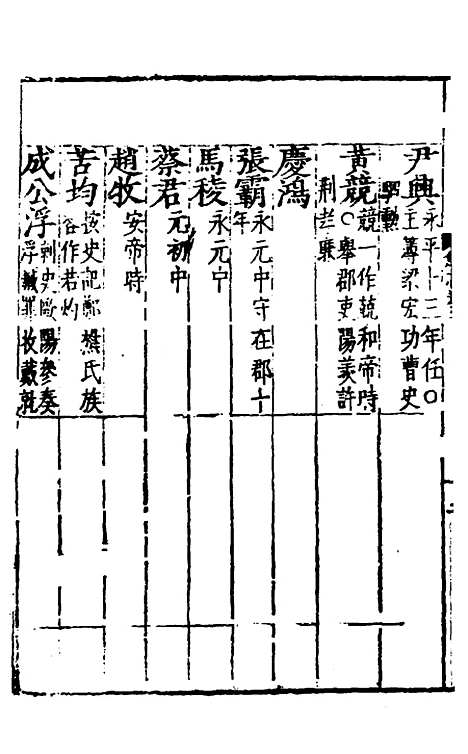 尹興永平十三年任○
主簿梁宏功曹史
駟勳
黃競競一作兢和帝時
○舉郡吏陽羨許
荊孝廉
慶鴻
張霸永元中守在郡十
年
馬稜永元中
蔡君元初中
趙牧安帝時
苦均按史記鄭樵氏族
畧作若灼
成公浮刺史歐陽參奏
浮贓罪收戴就